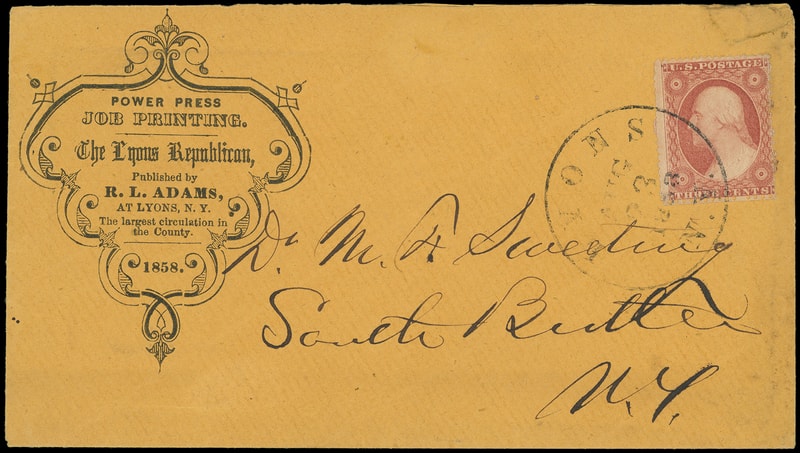 POWER PRESS
JOB PRINTING.
The Lyons Republican,
Published by
R. L. ADAMS,
AT LYONS, N. Y.
The largest circulation in
the County.
1858.
U.S. POSTAGE
THREE CENTS
LYONS
AUG
3
1858
N.Y.
Dr M. F Sweeting
South Butler
N.Y.